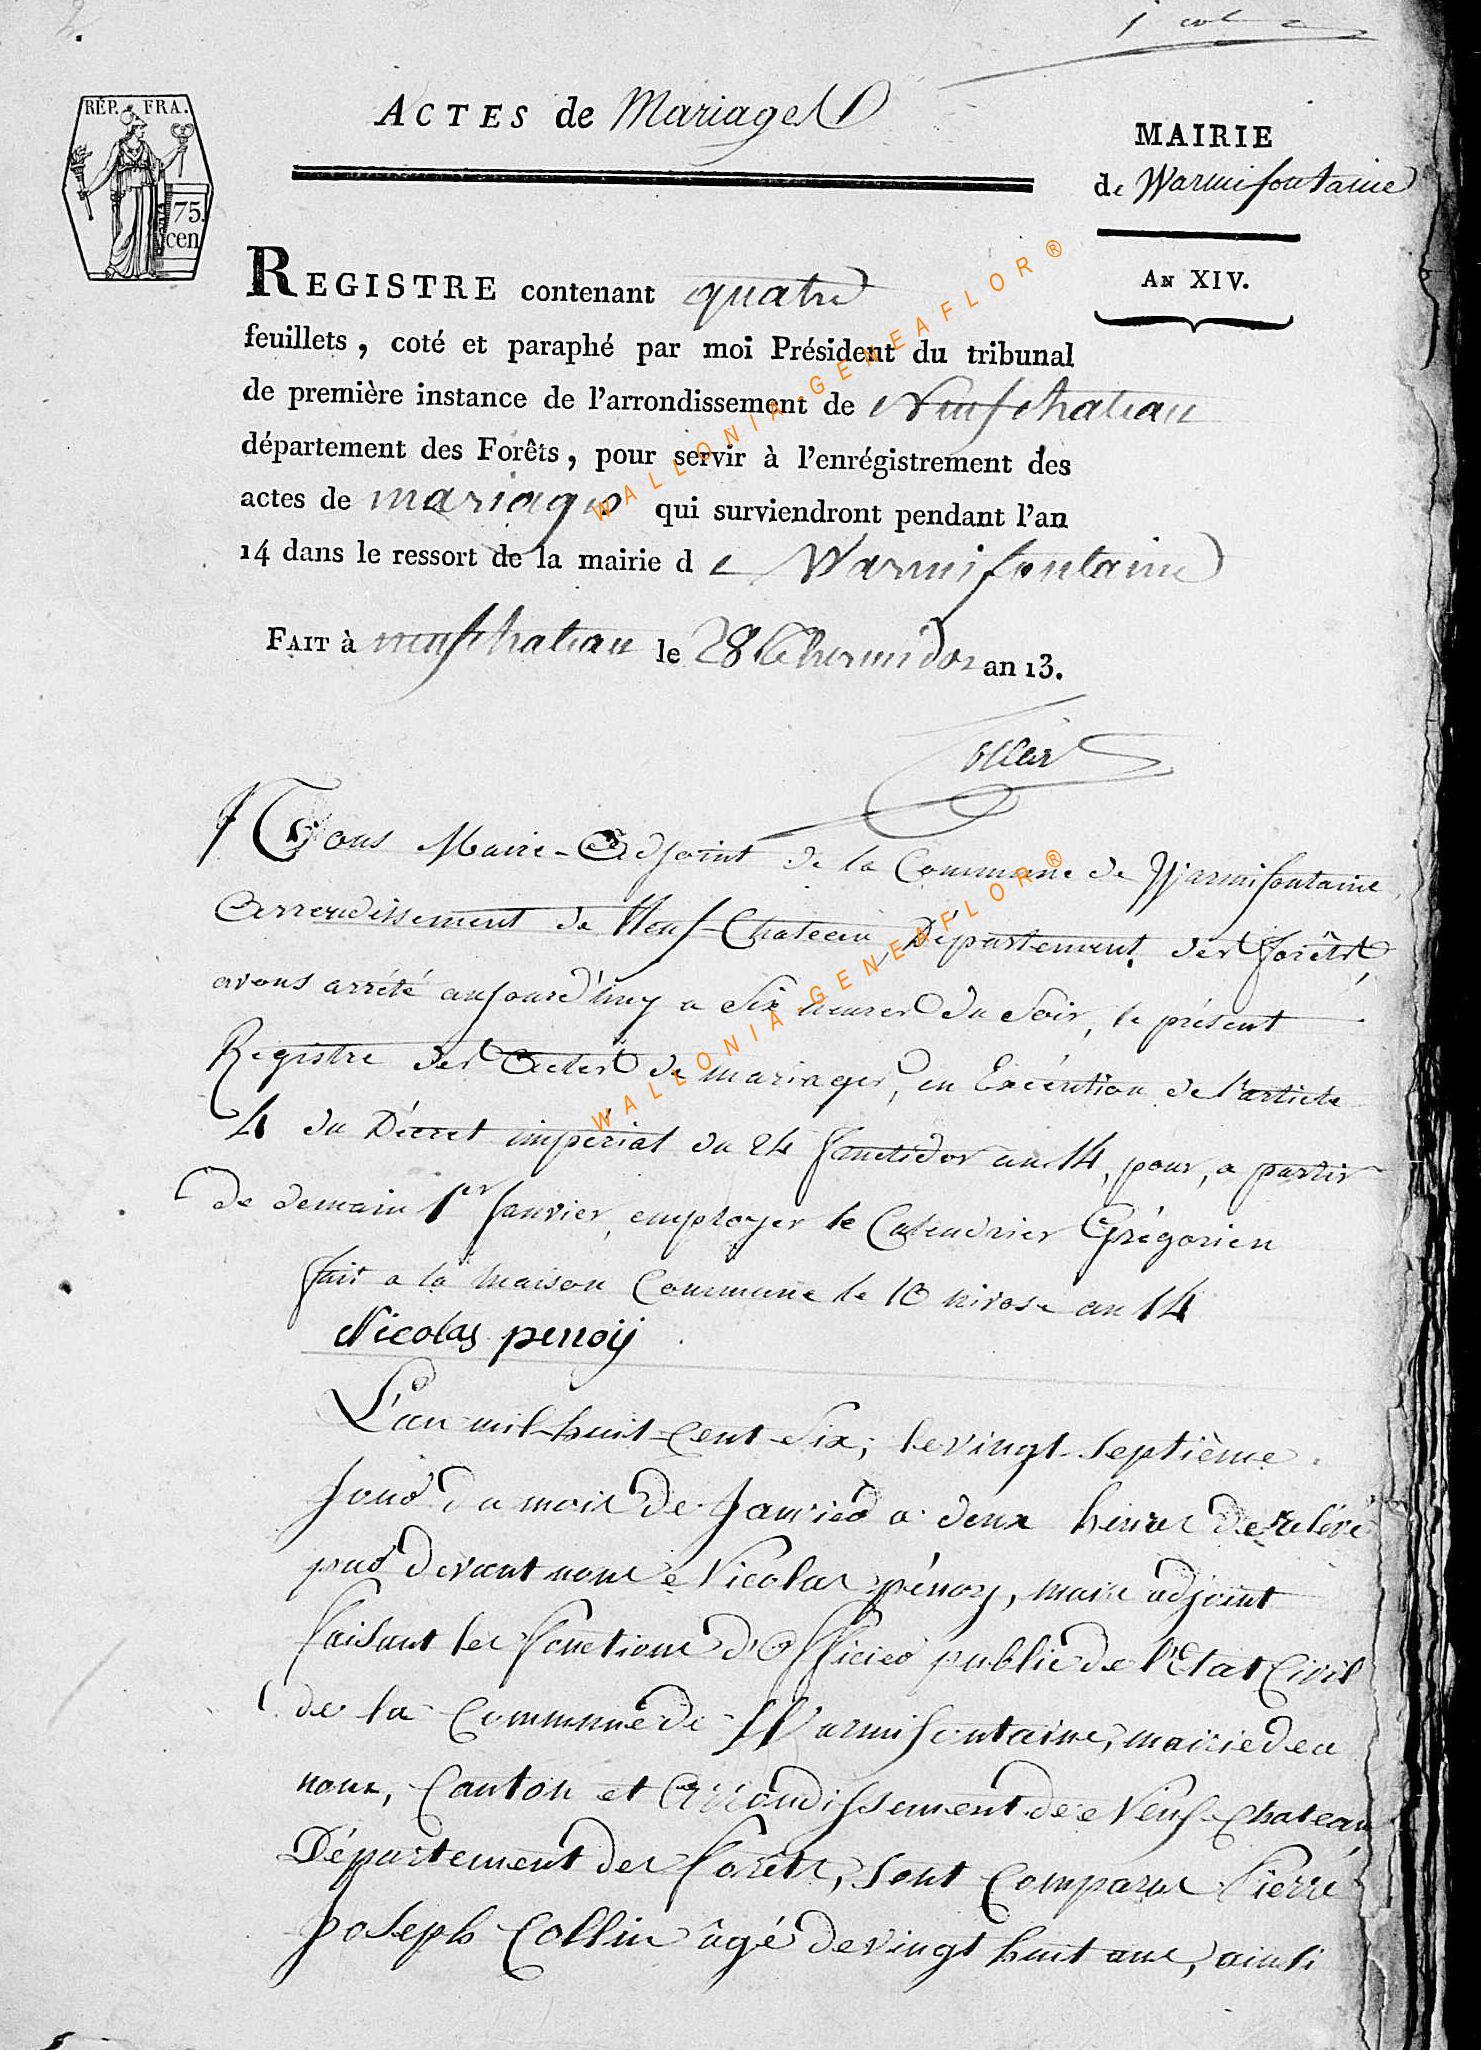 2.
RÉP. FRA.
75.
cen
ACTES de Mariages
MAIRIE
de Warmifontaine
AN XIV.
REGISTRE contenant quatre
feuillets, coté et paraphé par moi Président du tribunal
de première instance de l'arrondissement de Neufchateau
département des Forêts, pour servir à l'enrégistrement des
actes de mariage qui surviendront pendant l'an
14 dans le ressort de la mairie de Warmifontaine
FAIT à neufchateau le 28 thermidor an 13.
Nous Maire-Adjoint de la Commune de Warmifontaine,
Arrondissement de Neuf-Chateau, Département des forêts,
avons arrêté aujourd'huy a Six heures du Soir, le présent
Registre des Actes de mariages, en Exécution de l'article
4 du Décret impérial du 24 fructidor an 14, pour, a partir
de demain 1er Janvier, employer le Calendrier Grégorien
fait a la maison Commune le 10 nivose an 14
Nicolas penoij
L'an mil-huit-Cent-Six, le vingt-septième
jour du mois de janvier a deux heures de relevé
par devant nous Nicolas pénoy, maire adjoint
faisant les fonctions d'Officier public de l'Etat Civil
de la Commune de Warmifontaine, mairie de ce
nom, Canton et Arrondissement de Neuf-Chateau
Département des forêts, sont Comparus Pierre
joseph Collin âgé de vingt huit ans, ainsi
WALLONIA-GENEAFLOR®
WALLONIA-GENEAFLOR®